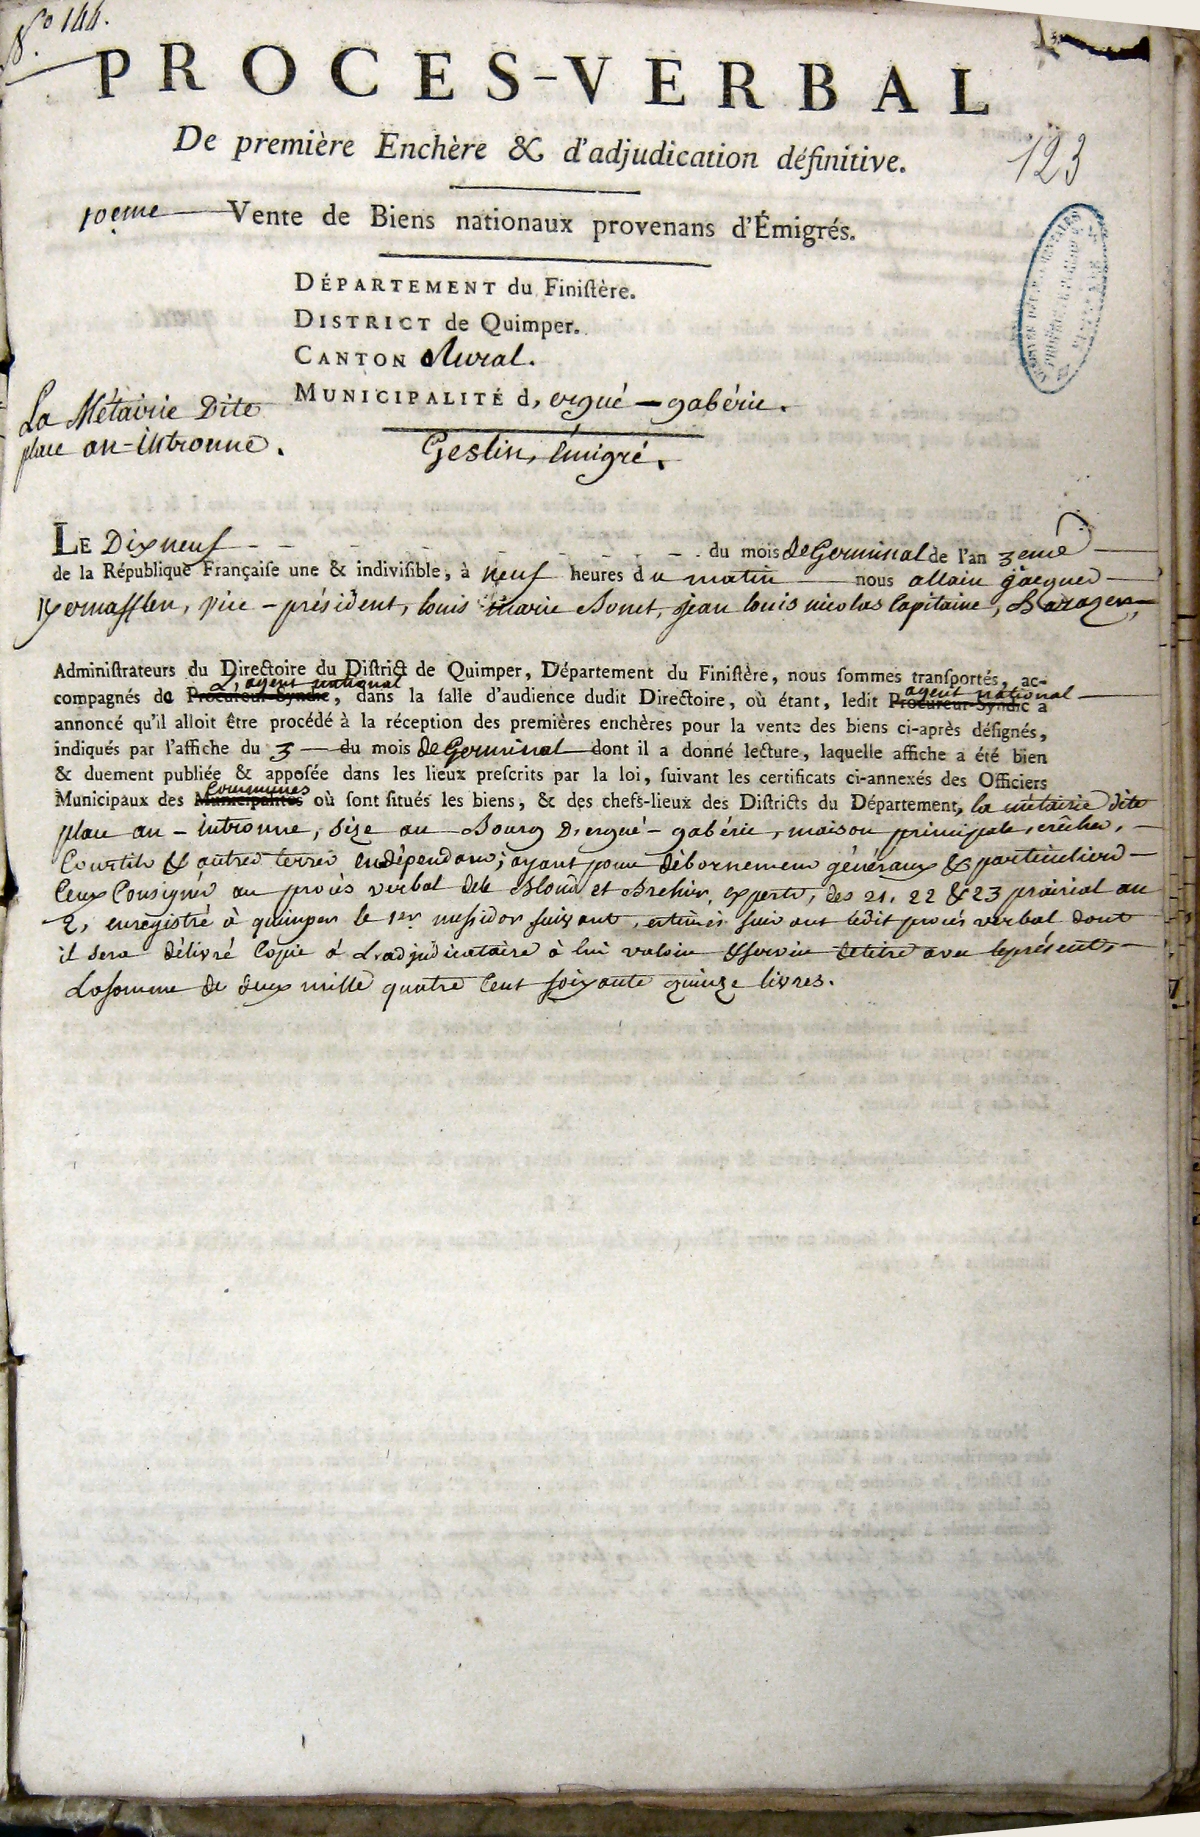 N.° 144.
PROCES-VERBAL
De première Enchère & d'adjudication définitive.
123
10eme Vente de Biens nationaux provenans d'Émigrés.
DÉPARTEMENT du Finistère.
DISTRICT de Quimper.
CANTON Rural.
MUNICIPALITÉ d, ergué-gabéric.
La Métairie Dite
place an-intronne.
Gestin, émigré.
LE Dix neuf du mois de Germinal de l'an 3eme
de la République Françaiſe une & indiviſible, à neuf heures du matin nous allain jacques
Kernafflen, vice-président, louis marie Bonet, jean louis nicolas Capitaine,
Adminiſtrateurs du Directoire du Diſtrict de Quimper, Département du Finiſtère, nous ſommes tranſportés, ac-
compagnés de L'agent national Procureur-Syndic, dans la ſalle d'audience dudit Directoire, où étant, ledit agent national Procureur-Syndic a
annoncé qu'il alloit être procédé à la réception des premières enchères pour la vente des biens ci-après déſignés,
indiqués par l'affiche du 3 du mois de Germinal dont il a donné lecture, laquelle affiche a été bien
& duement publiée & appoſée dans les lieux preſcrits par la loi, ſuivant les certificats ci-annexés des Officiers
Municipaux des Communes Municipalités où ſont ſitués les biens, & des chefs-lieux des Diſtricts du Département, la métairie dite
place an-intronne, size au Bourg D'ergué-gabéric, maison principale, crêches,
Courtils & autres terres en dépendans; ayant pour débornemens généraux & particuliers
Ceux Consignés au procès verbal de et Brehier, experts, des 21, 22 & 23 prairial an
2, enregistré à quimper le 1er messidor suivant, estimés suivant ledit procès verbal dont
il sera délivré Copie à L'adjudicataire à lui valoir & servir de titre avec le présent,
La somme de deux mille quatre Cent soixante quinze livres.